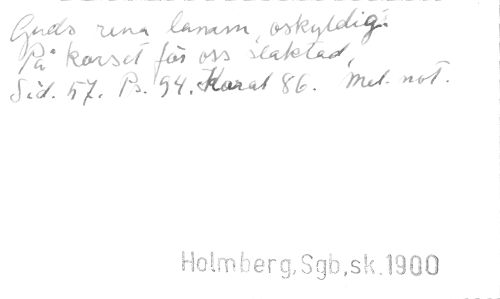 Guds rena lamm, oskyldig.
På korset för oss slaktad,
Sid. 57. Ps. 94. Koral 86. Mel. not.
Holmberg, Sgb, sk. 1900